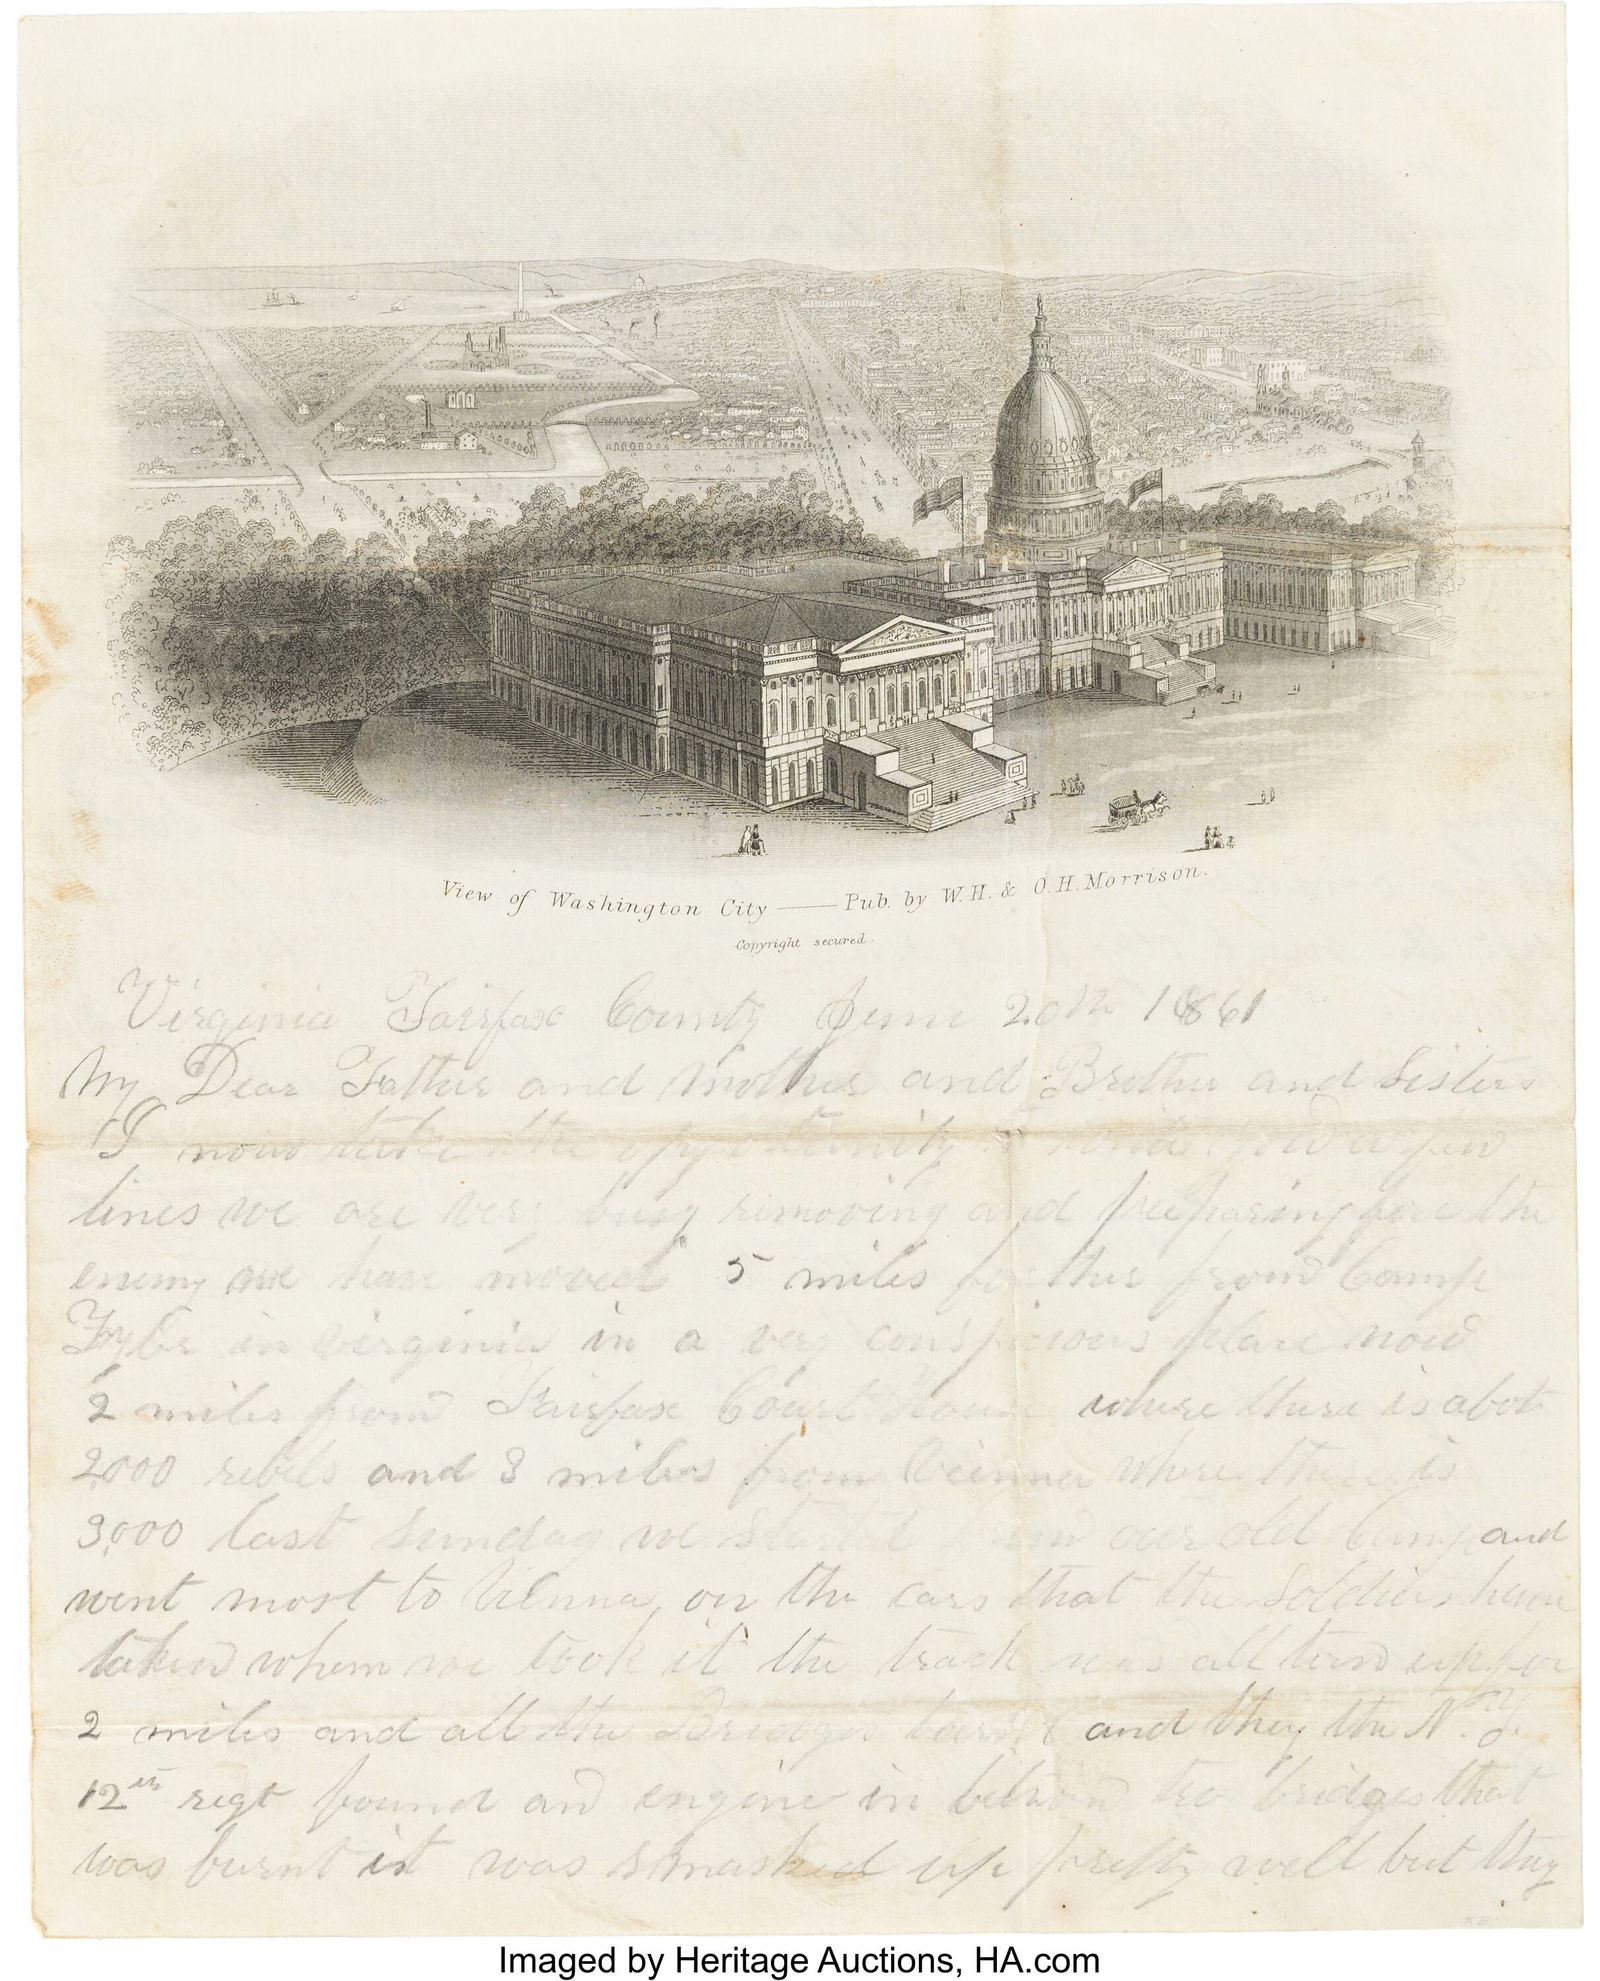 View of Washington City — Pub. by W.H. & O.H. Morrison.
Copyright secured.
Virginia Fairfax County June 20th 1861
My Dear Father and Mother and Brother and Sisters
I now take the opportunity to you a few
lines we are very busy removing and preparing fore the
enemy we have moved 5 miles further from Camp
in virginia in a very conspicious place now
2 miles from Fairfax Court House where there is abot
2000 rebels and 3 miles from where there is
3,000 last sunday we started from our old Camp and
went most to Vienna on the cars that the Soldiers have
taken when we took it the track was all torn up for
2 miles and all the Bridges burnt and they the N.Y.
12th regt found an engine in between two bridges that
was burnt it was smashed up pretty well but they
Imaged by Heritage Auctions, HA.com